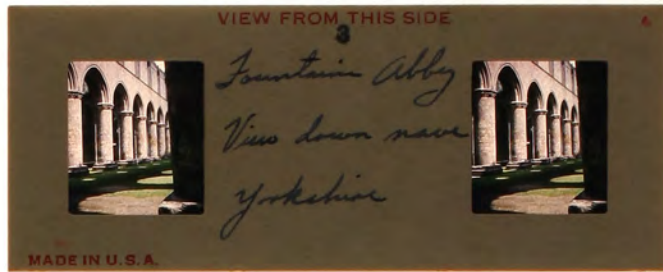 VIEW FROM THIS SIDE
3
6
Fountains Abbey
View down nave
Yorkshire
MADE IN U.S.A.